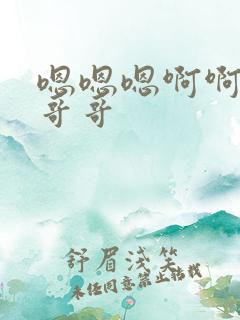 嗯嗯嗯啊啊
哥哥
舒眉浅笑
未经同意禁止转载